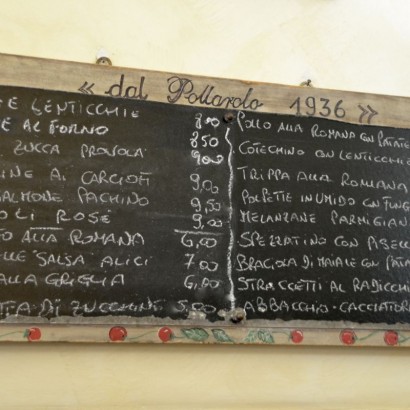 « dal Pollarolo 1936 »
E LENTICCHIE 8,00
E AL FORNO 8,50
ZUCCA PROVOLA 9,00
INE AI CARCIOFI 9,00
SALMONE PACHINO 9,50
OLI ROSÈ 9,00
O ALLA ROMANA 6,00
LLE SALSA ALICI 7,00
ALLA GRIGLIA 6,00
DI ZUCCHINE 5,00
POLLO ALLA ROMANA CON PATATE
COTECHINO CON LENTICCHIE
TRIPPA ALLA ROMANA
POLPETTE IN UMIDO CON FUNG
MELANZANE PARMIGIAN
SPEZZATINO CON PISELL
BRACIOLA DI MAIALE CON PATA
STRACCETTI AL RADICCHI
ABBACCHIO-CACCIATOR